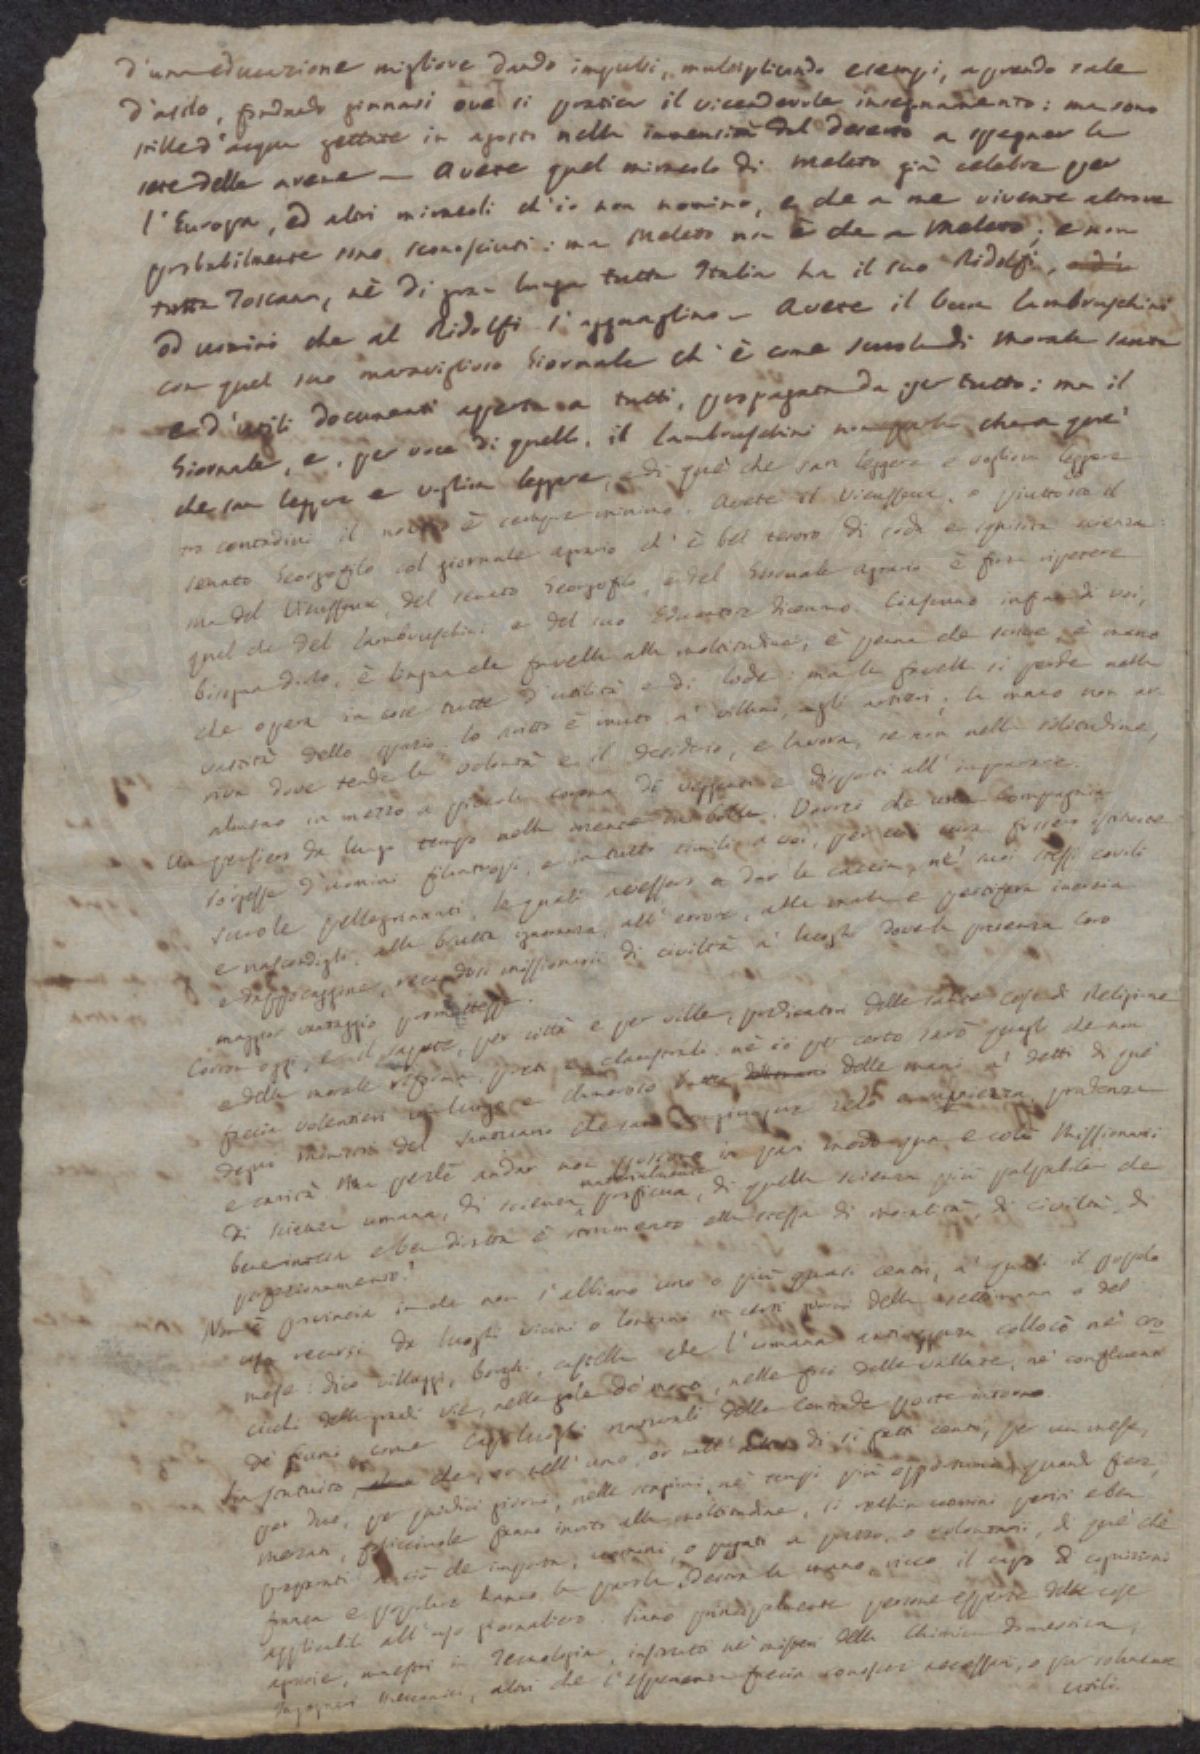 d'una educazione migliore dando impulsi, moltiplicando esempi, aprendo sale
d'asilo, fondando ginnasi ove si pratica il vicendevole insegnamento: ma sono
stille d'acqua gettate in agosto nella immensità del deserto a spegner la
sete delle arene — Avete quel miracolo di Meleto già celebre per
l'Europa, ed altri miracoli ch'io non nomino, e che a me vivente altrove
probabilmente sono sconosciuti: ma Meleto non è che a Meleto; e non
tutta Toscana, nè di gran lunga tutta Italia ha il suo Ridolfi,
od uomini che al Ridolfi s'agguaglino — Avete il buon Lambruschini
con quel suo maraviglioso Giornale ch'è come scuola di morale santa
e d'utili documenti aperta a tutti, propagata da per tutto: ma il
Giornale, e, per voce di quello, il Lambruschini non parla che a que'
che san leggere e voglion leggere, e di que' che san leggere e voglion leggere
tra contadini il numero è sempre minimo. Avete il Vieusseux, o piuttosto il
senato Georgofilo col giornale agrario ch'è bel tesoro di soda e squisita scienza:
ma del Vieusseux, del senato Georgofilo, e del Giornale agrario è forza ripetere
quel che del Lambruschini e del suo Educatore dicemmo. Ciascuno infine di voi,
bisogna dirlo, è lingua che favella alla moltitudine, è penna che scrive, è mano
che opera in cose tutte d'utilità e di lode: ma la favella si perde nella
vastità dello spazio, lo scritto è muto a' villani, agli artieri; la mano non ar-
riva dove tende la volontà e il desiderio, e lavora, se non nella solitudine,
almeno in mezzo a piccola corona di vogliosi e disposti all'imparare.
Un pensiero da lungo tempo nella mente mi bolle. Vorrei che una compagnia
sorgesse d'uomini filantropi, e in tutto simili a voi, per cui cura fossero istituite
scuole pellegrinanti, le quali avessero a dar la caccia, ne' suoi stessi covili
e nascondigli, alla brutta ignoranza, all'errore, alla mala e pestifera inerzia
e dappocaggine, recandosi missionarie di civiltà a' luoghi dove la presenza loro
maggior vantaggio promettesse.
Corron oggi, e il sapete, per città e per ville, predicatori delle sante cose di Religione
e della morale riforma, preti e claustrali: nè io per certo sarò quegli che non
faccia volentieri un lungo e clamoroso delle mani a' detti di que'
degni ministri del Santuario che san congiungere zelo a sapienza, prudenza
e carità. Ma perchè andar non possono in pari modo qua e colà Missionari
di scienza umana, di scienza materialmente proficua, di quella scienza più palpabile che
bene intesa e ben diretta è strumento ella stessa di moralità, di civiltà, di
perfezionamento?
Non è provincia in che non s'abbiano uno o più quasi centri, a' quali il popolo
usa recarsi da luoghi vicini o lontani in certi giorni della settimana o del
mese: dico villaggi, borghi, castella che l'umana antiveggenza collocò ne' cro-
cicchi delle grandi vie, nelle gole de' monti, nelle foci delle vallate, ne' confluenti
de' fiumi, come capoluoghi naturali delle contrade poste intorno
Sia statuito che, or nell'uno, or nell'altro di sì fatti centri, per un mese,
per due, per quindici giorni, nelle stagioni, ne' tempi più opportuni, quando fiere,
mercati, faccian invito alla moltitudine, si rechin uomini periti e ben
preparati a ciò che importa; uomini, o pagati a prezzo, o volontarii, di que' che
franca e popolare hanno la parola, destra la mano, ricco il capo di cognizioni
applicabili all'uso giornaliero. Siano principalmente persone esperte delle cose
agrarie, maestri in Tecnologia, istrutti ne' misteri della Chimica domestica,
Ingegneri Meccanici, altri che l'esperienza faccia conoscer necessari, o pur solamente
utili.